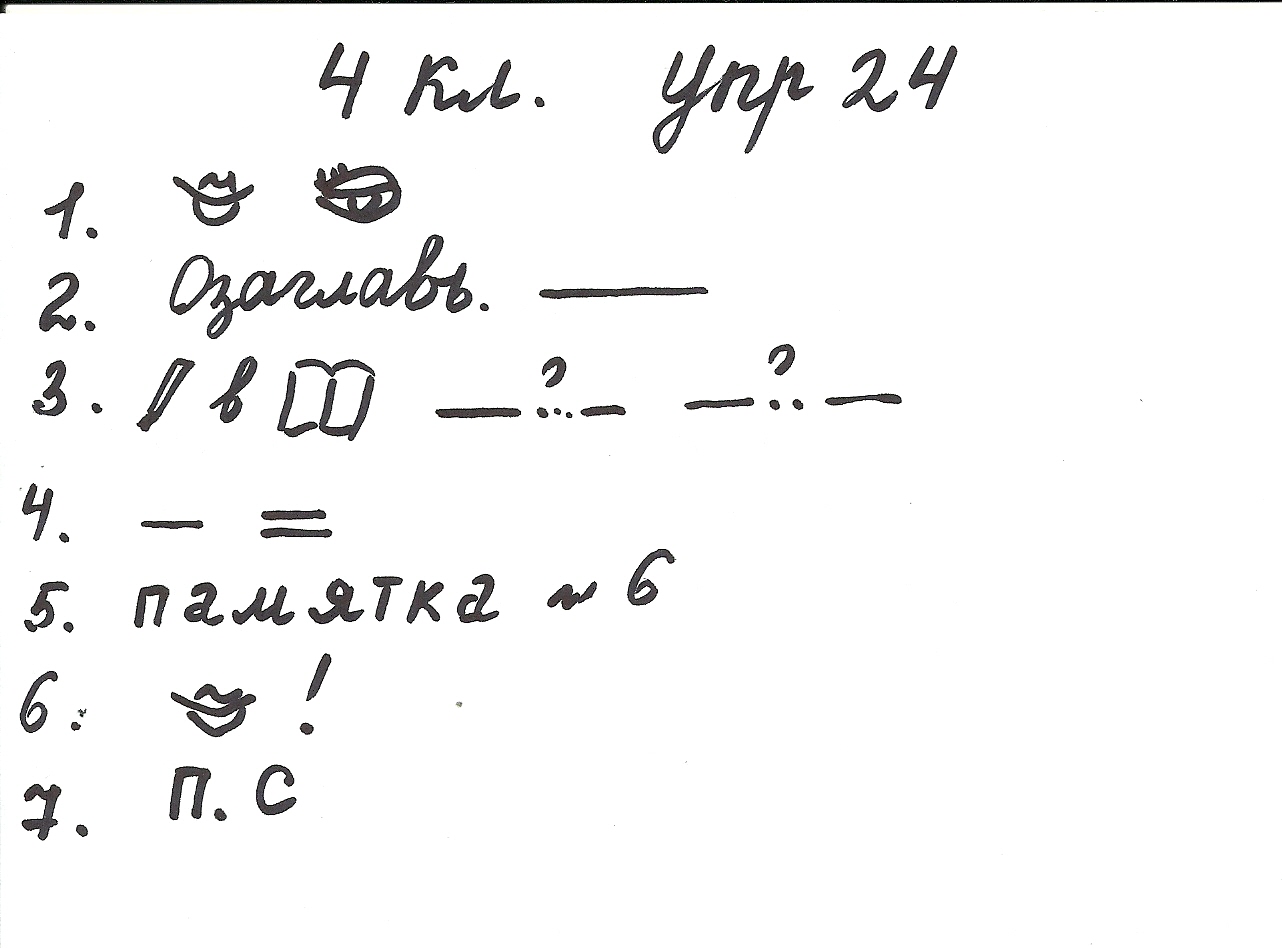 4 кл. Упр 24
1.
2. Озаглавь. ———
3. в —?...— —?..—
4. — =
5. памятка № 6
6. !
7. П. С